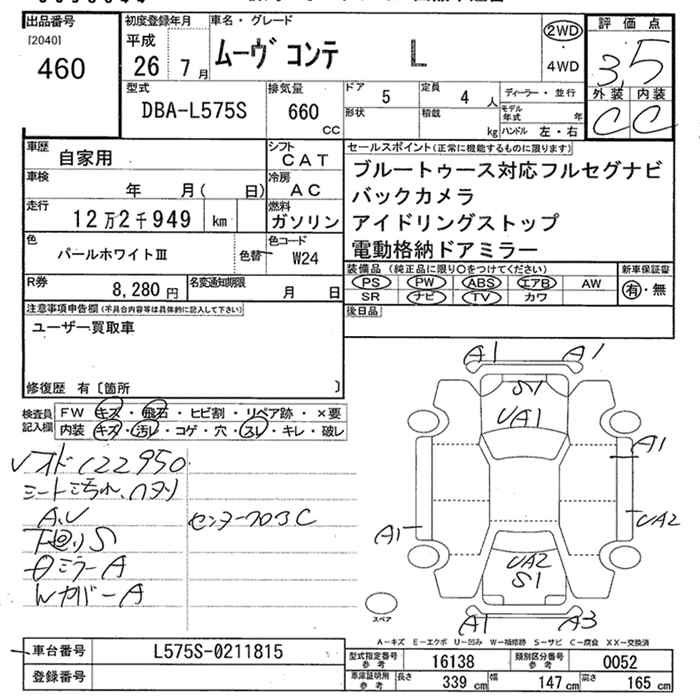 出品番号 初度登録年月 車名・グレード 評価点
[2040] 平成 ムーヴ コンテ L 2WD 3.5
460 26年 7月 4WD
型式 排気量 ドア 定員 ディーラー・並行 外装 内装
DBA-L575S 660 5 4人 モデル年式 年 C C
cc 形状 積載 kg ハンドル 左・右
車歴 自家用 シフト CAT セールスポイント(正常に機能するものに限ります)
車検 年 月( 日) 冷房 AC ブルートゥース対応フルセグナビ
走行 12万2千949 km 燃料 ガソリン バックカメラ
アイドリングストップ
色 パールホワイトⅢ 色替 色コード W24 電動格納ドアミラー
R券 8,280円 名変通知期限 月 日 装備品(純正品に限り○をつけてください) 新車保証書
PS PW ABS エアB AW 有・無
SR ナビ TV カワ
注意事項申告欄(不具合内容等は具体的に記入して下さい) 後日品
ユーザー買取車
修復歴 有〔箇所 〕
検査員記入欄 FW キズ・飛石・ヒビ割・リペア跡・×要
内装 キズ・汚レ・コゲ・穴・スレ・キレ・破レ
A1 A1
S1
UA1
A1
UA2
A1
UA2
S1
A1 A3
122950
シート汚れ、ハタリ
A、U
下廻りS
ミラーA
WカバーA
スペア
A-キズ E-エクボ U-凹み W-補修跡 S-サビ C-腐食 XX-交換済
車台番号 L575S-0211815 型式指定番号 参考 16138 類別区分番号 参考 0052
登録番号 車庫証明用 参考 長さ 339cm 幅 147cm 高さ 165cm